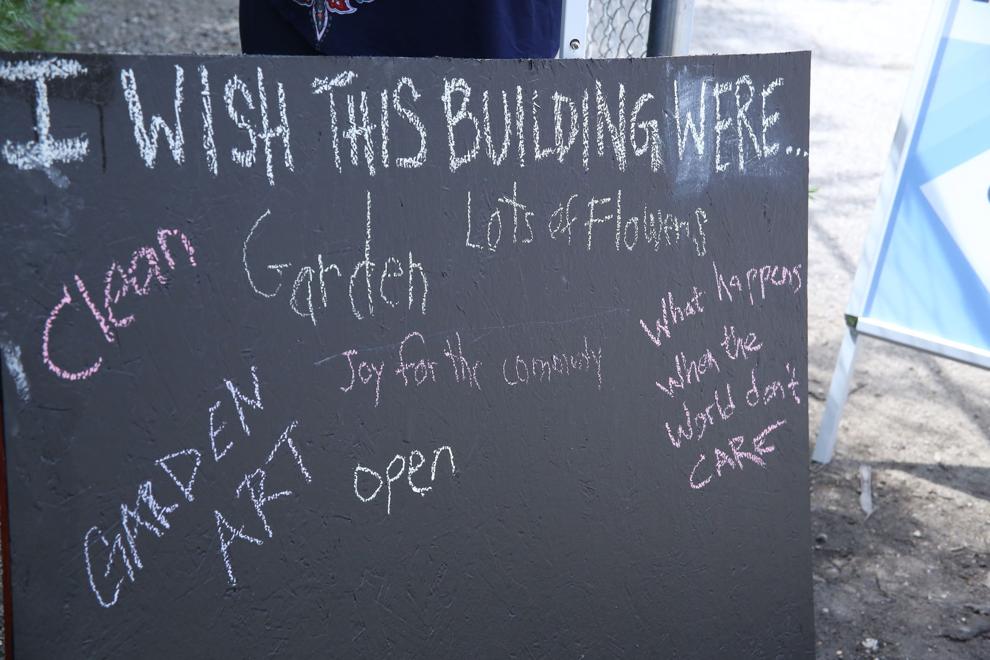 I WISH THIS BUILDING WERE...
Lots of Flowers
Garden
Clean
What happens
When the
World don't
CARE
Joy for the
GARDEN
ART
open